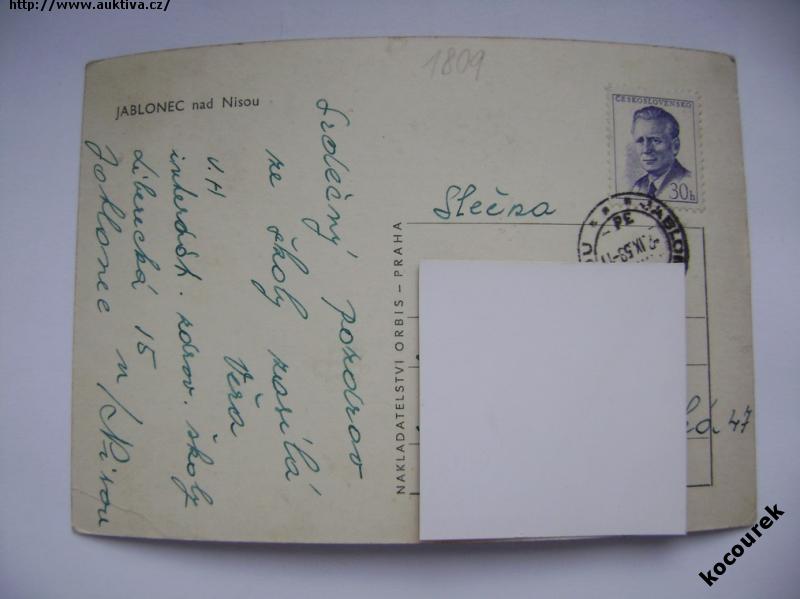 http://www.auktiva.cz/
1809
JABLONEC nad Nisou
Srdečný pozdrav
ze školy zasílá
Věra
V.H
internát. zdrav. školy
Liberecká 15
Jablonec n/Nisou
NAKLADATELSTVÍ ORBIS – PRAHA
ČESKOSLOVENSKO
30h
JABLON
Slečna
47
kocourek